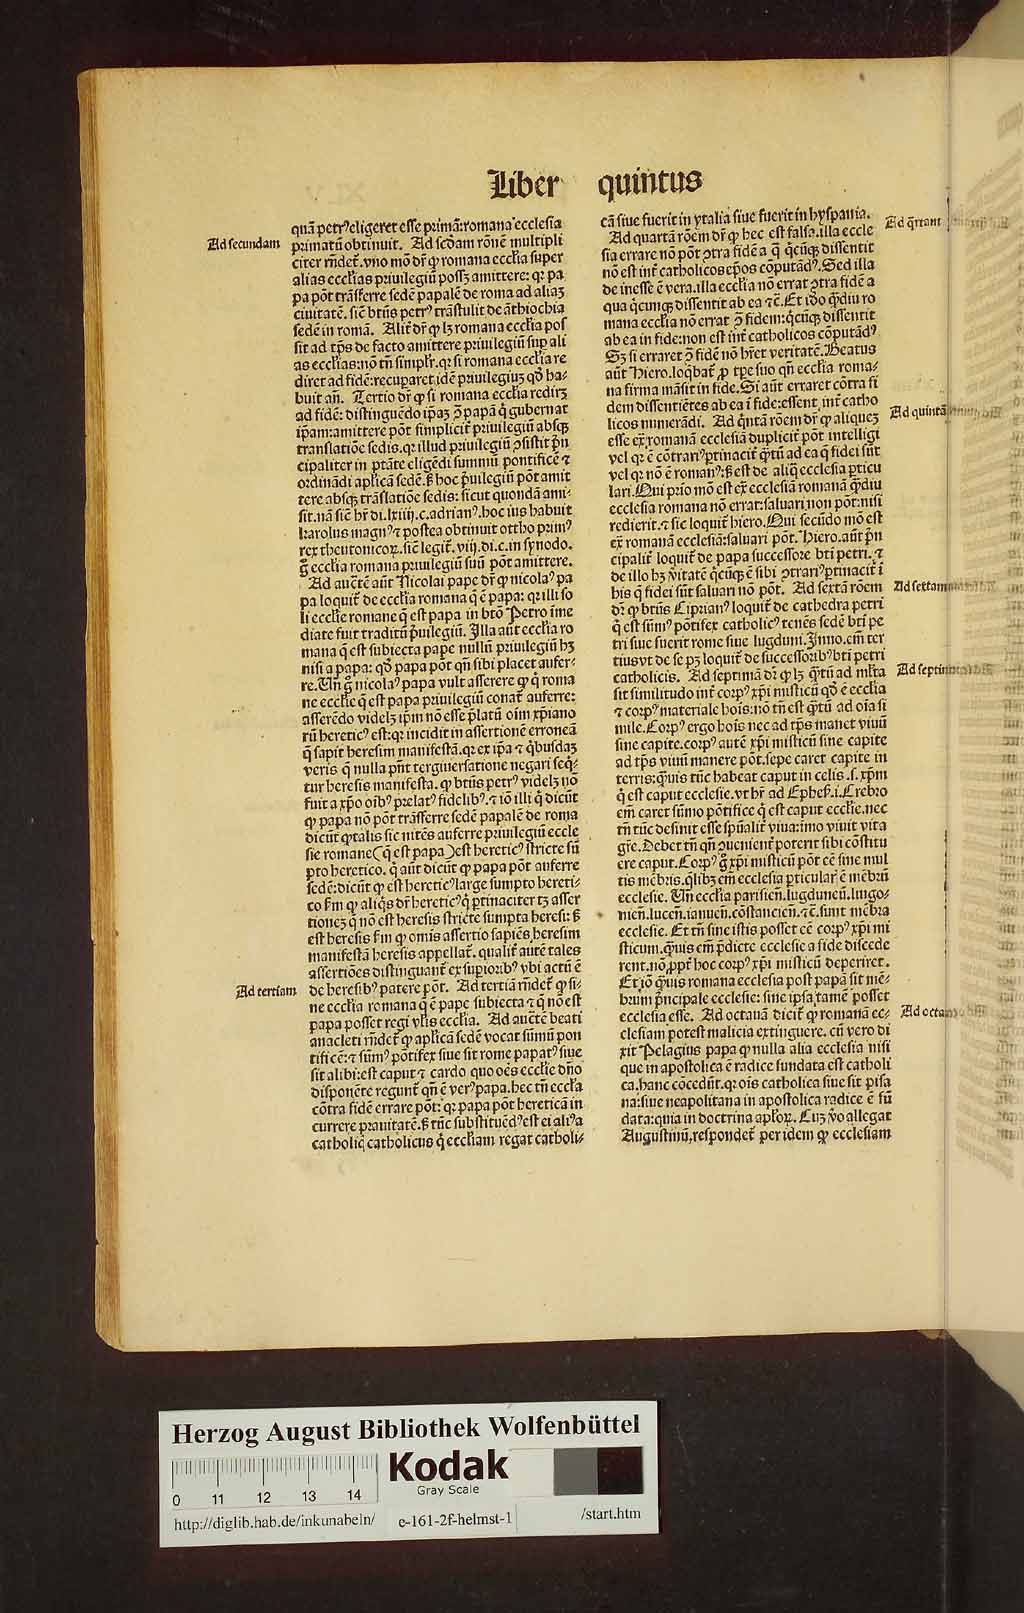 Liber quintus
quã petrꝰ eligeret esse primã: romana ecclesia
Ad secundam
primatũ obtinuit. Ad scđam rõnẽ multipli
citer rñdet̃. vno mõ dr̃ ꝙ romana eccłia super
alias eccłias priuilegiũ possꝫ amittere: qꝛ pa
pa põt trãsferre sedẽ papalẽ de roma ad aliaꝫ
ciuitatẽ. sic̃ btũs petrꝰ trãstulit de ãthiochia
sedẽ in romã. Alit̃ dr̃ ꝙ lꝫ romana eccłia pos
sit ad tp̃s de facto amittere priuilegiũ sup ali
as eccłias: nõ tñ simpłr. qꝛ si romana eccłia re
diret ad fidẽ: recuparet idẽ priuilegiuꝫ qđ ha-
buit añ. Tertio dr̃ ꝙ si romana eccłia redirꝫ
ad fidẽ: distinguẽdo ip̃aꝫ ↄ̃ papã q̇ gubernat
ip̃am: amittere põt simplicit̃ priuilegiũ absqꝫ
translatiõe sedis. qꝛ illud priuilegiũ ↄsistit p̃n
cipaliter in ptãte eligẽdi summũ pontificẽ ⁊
ordinãdi aplicã sedẽ. ꝫ hoc p̃uilegiũ põt amit
tere absqꝫ trãslatiõe sedis: sicut quondã ami-
sit. nã sic̃ hr̃ di. lxiij. c. adrianꝰ. hoc ius habuit
karolus magnꝰ ⁊ postea obtinuit ottho primꝰ
rex theutonicoꝝ. sic̃ legit̃. viij. di. c. in synodo.
g̃ ecclia romana priuilegiũ suũ põt amittere.
Ad auctẽ aũt Nicolai pape dr̃ ꝙ nicolaꝰ pa
pa loquit̃ de eccłia romana q̃ ẽ papa: qꝛ illi so
li ecclie romane q̃ est papa in btõ Petro ime
diate fuit traditũ p̃uilegiũ. Illa aũt eccłia ro
mana q̃ est subiecta pape nullũ priuilegiũ hꝫ
nisi a papa: qđ papa põt qñ sibi placet aufer-
re. Vñ g̃ nicolaꝰ papa vult asserere ꝙ q̇ roma
ne ecclie q̃ est papa priuilegiũ conat̃ auferre:
asserẽdo videlꝫ ip̃m nõ esse p̃latũ oĩm xp̃iano
rũ hereticꝰ est: qꝛ incidit in assertionẽ erroneã
q̃ sapit heresim manifestã. qꝛ ex ip̃a ⁊ q̇busdaꝫ
veris q̃ nulla pñt tergiuersatione negari seq̃-
tur heresis manifesta. ꝙ btũs petrꝰ videlꝫ nõ
fuit a xp̃o oĩbꝰ prelatꝰ fidelibꝰ. ⁊ iõ illi q̇ dicũt
ꝙ papa nõ põt trãsferre sedẽ papalẽ de roma
dicũt ꝙ talis sic nitẽs auferre priuilegiũ eccle
sie romane (q̃ est papa) est hereticꝰ stricte sũ
pto heretico. q̇ aũt dicũt ꝙ papa põt auferre
sedẽ: dicũt ꝙ est hereticꝰ large sumpto hereti-
co fm̃ ꝙ aliq̇s dr̃ hereticꝰ q̇ ptinaciter tꝫ asser
tioneꝫ q̃ nõ est heresis stricte sumpta heresi: ꝫ
est heresis fm̃ ꝙ omĩs assertio sapiẽs heresim
manifestã heresis appellat̃. qualit̃ autẽ tales
assertiões distinguant̃ ex supioribꝰ vbi actũ ẽ
Ad tertiam
de heresibꝰ patere põt. Ad tertiã rñdet̃ ꝙ si-
ne eccłia romana q̃ ẽ pape subiecta ⁊ q̃ nõ est
papa posset regi vłis eccłia. Ad auctẽ beati
anacleti rñdet̃ ꝙ aplicã sedẽ vocat sũmũ pon
tificẽ: ⁊ sũmꝰ põtifex siue sit rome papatꝰ siue
sit alibi: est caput ⁊ cardo quo oẽs ecclie dño
disponẽte regunt̃ qñ ẽ verꝰ papa. hec tñ eccłia
cõtra fidẽ errare põt: qꝛ papa põt hereticã in
currere prauitatẽ. ꝫ tũc substituẽdꝰ est ei altꝰ a
catholiq̇ catholicus q̇ eccłiam regat catholi-
cã siue fuerit in ytalia siue fuerit in hyspania.
Ad q̃rtant
Ad quartã rõem dr̃ ꝙ hec est falsa. illa eccle
sia errare nõ põt ↄtra fidẽ a q̃ q̇cũqꝫ dissentit
nõ est int̃ catholicos ep̃os cõputãdꝰ. Sed illa
de inesse ẽ vera. illa eccłia nõ errat ↄtra fidẽ a
qua q̇cunqꝫ dissentit ab ea ⁊c̃. Et iđo q̃diu ro
mana eccłia nõ errat ↄ̃ fidem: q̇cũqꝫ dissentit
ab ea in fide: non est int̃ catholicos cõputãdꝰ
Sꝫ si erraret ↄ̃ fidẽ nõ hr̃et veritatẽ. Beatus
aũt Hiero. loq̃bat̃ ꝓ tp̃e suo qñ ecclia roma-
na firma mãsit in fide. Si aũt erraret cõtra fi
dem dissentiẽtes ab ea ĩ fide: essent int̃ catho
Ad quintã
licos numerãdi. Ad q̃ntã rõem dr̃ ꝙ aliqueꝫ
esse ex̃ romanã ecclesiã duplicit̃ põt intelligi
vel qꝛ ẽ cõtrariꝰ ptinacit̃ q̃tũ ad ea q̃ fidei sũt
vel qꝛ nõ ẽ romanꝰ: ꝫ est de aliq̃ ecclesia pticu
lari. Qui prio mõ est ex̃ ecclesiã romanã q̃diu
ecclesia romana nõ errat: saluari non põt: nisi
redierit. ⁊ sic loquit̃ hiero. Qui secũdo mõ est
ex̃ romanã ecclesiã: saluari põt. Hiero. aũt p̃n
cipalit̃ loquit̃ de papa successore bti petri. ⁊
de illo hꝫ v̾itatẽ q̇cũqꝫ ẽ sibi ↄtrariꝰ ptinacit̃ ĩ
Ad sextam
his q̃ fidei sũt saluari nõ põt. Ad sextã rõem
dr̃ ꝙ btũs Ciprianꝰ loquit̃ de cathedra petri
q̃ est sũmꝰ põtifex catholicꝰ tenẽs sedẽ bti pe
tri siue fuerit rome siue lugduni. Inno. em̃ ter
tius vt de se pꝫ loquit̃ de successoribꝰ bti petri
Ad septimã
catholicis. Ad septimã dr̃ ꝙ lꝫ q̃tũ ad młta
sit similitudo int̃ corpꝰ xp̃i misticũ qđ ẽ ecclia
⁊ corpꝰ materiale hois: nõ tñ est q̃tũ ad oĩa si
mile. Corpꝰ ergo hois nec ad tp̃s manet viuũ
sine capite. corpꝰ autẽ xp̃i misticũ sine capite
ad tp̃s viuũ manere põt. sepe caret capite in
terris: q̃uis tũc habeat caput in celis. s. xp̃m
q̇ est caput ecclesie. vt hr̃ ad Ephes̃. i. Crebro
em̃ caret sũmo põtifice q̇ est caput ecclie. nec
tñ tũc desinit esse spũalit̃ viua: imo viuit vita
gr̃e. Debet tñ qñ ↄuenient̃ poterit sibi cõstitu
ere caput. Corpꝰ g̃ xp̃i misticũ põt cẽ sine mul
tis mẽbris. q̃libꝫ em̃ ecclesia pticular̃ ẽ mẽbrũ
ecclesie. Vñ eccłia parisieñ. lugduneñ. lingo-
nieñ. luceñ. ianueñ. cõstancieñ. ⁊c̃. sunt mẽbra
ecclesie. Et tñ sine istis posset cẽ corpꝰ xp̃i mi
sticum. q̃uis em̃ p̃dicte ecclesie a fide discede
rent. nõ ꝓpt̃ hoc corpꝰ xp̃i misticũ deperiret.
Et iõ q̃uis romana ecclesia post papã sit mẽ-
brum p̃ncipale ecclesie: sine ipsa tamẽ posset
Ad octauã
ecclesia esse. Ad octauã dicit̃ ꝙ romanã ec-
clesiam potest malicia extinguere. cũ vero di
xit Pelagius papa ꝙ nulla alia ecclesia nisi
que in apostolica ẽ radice fundata est catholi
ca. hanc cõcedũt. qꝛ oĩs catholica siue sit pisa
na: siue neapolitana in apostolica radice ẽ fũ
data: quia in doctrina aplõꝝ. Cuꝫ v̾o allegat
Augustinũ, respondet̃ per idem ꝙ ecclesiam
Herzog August Bibliothek Wolfenbüttel
Kodak
Gray Scale
0 11 12 13 14
http://diglib.hab.de/inkunabeln/ e-161-2f-helmst-1 /start.htm